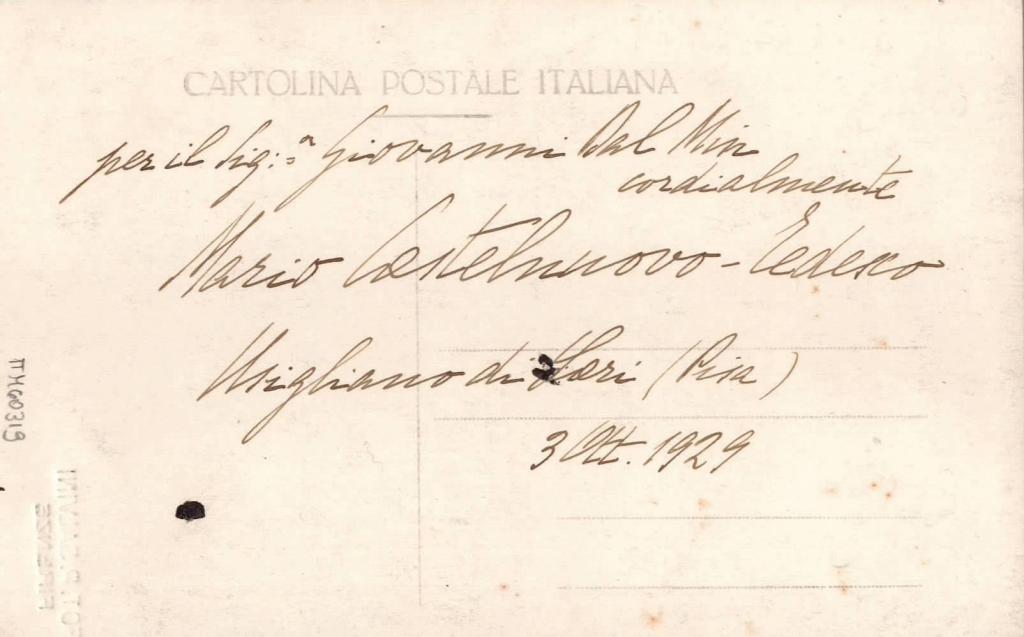 CARTOLINA POSTALE ITALIANA
per il Sig:ʳ Giovanni Dal Min
cordialmente
Mario Castelnuovo-Tedesco
Usigliano di Lari (Pisa)
3 Ott. 1929
TMG0319
FIRENZE